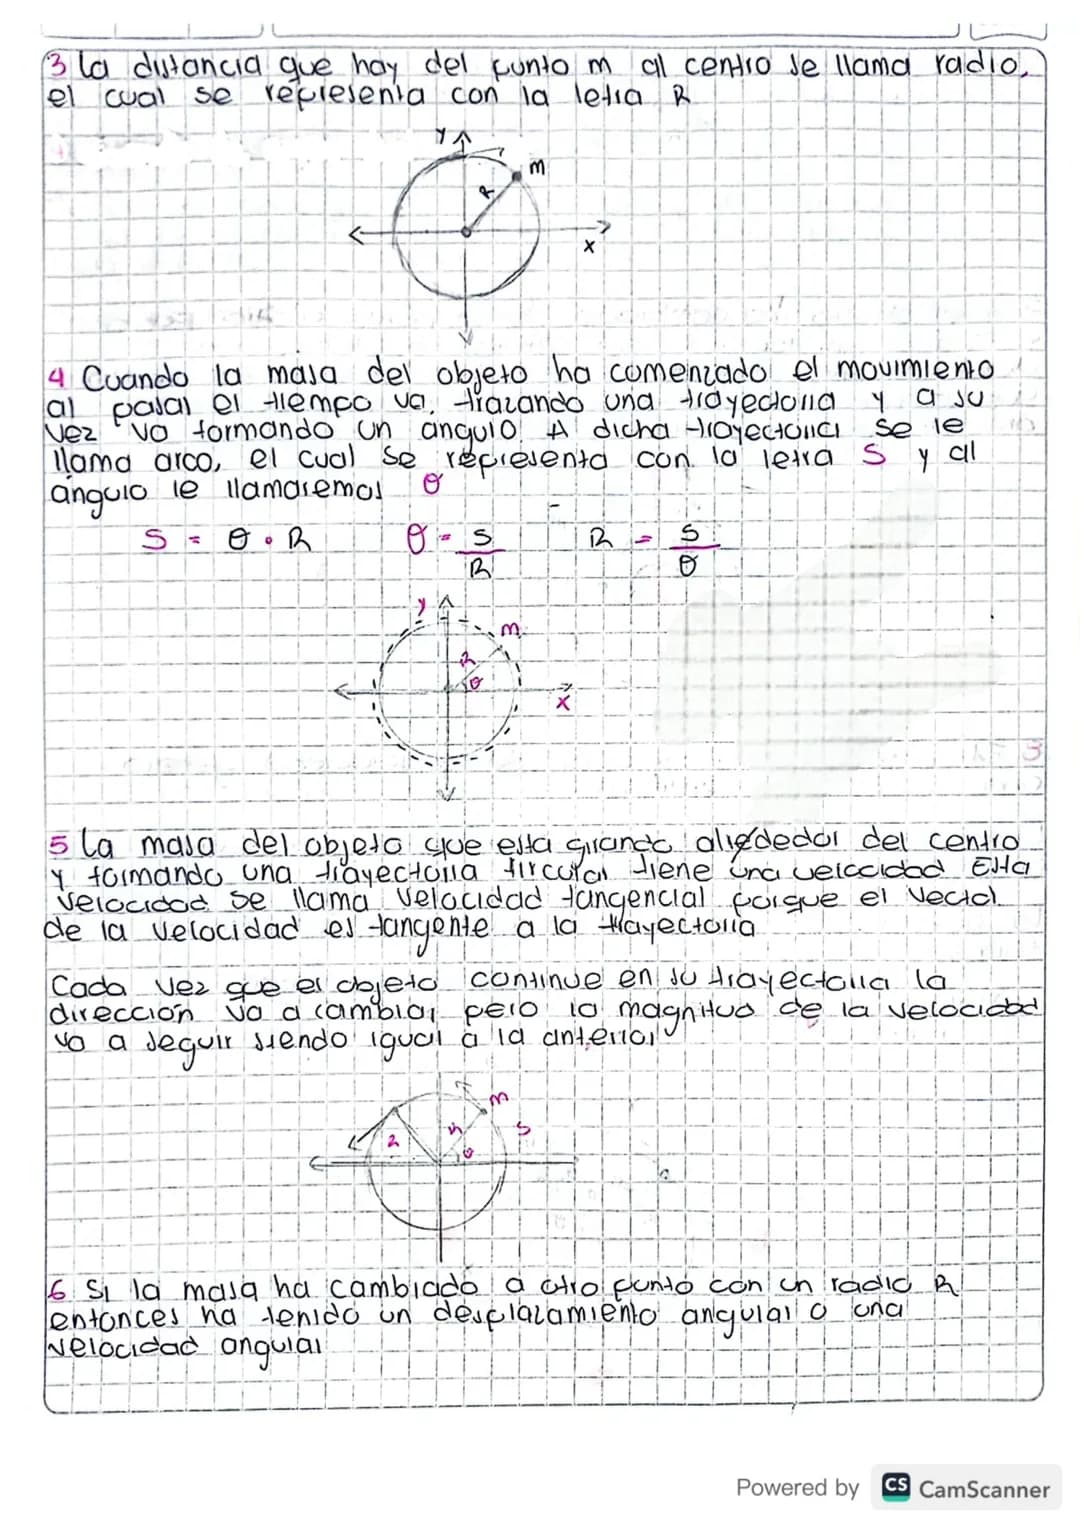 3 La distancia que hay del punto m al centro se llama radio,
el cual se representa con la letra R
y
m
R
x
4 Cuando la masa del objeto ha comenzado el movimiento
al pasar el tiempo va, trazando una trayectoria y a su
vez va formando un angulo. A dicha trayectoria se le
llama arco, el cual se representa con la letra S y al
ángulo le llamaremos θ
S = θ • R    θ = S/R    R = S/θ
y
m
R
θ
x
5 La masa del objeto que esta girando alrededor del centro
y formando una trayectoria circular tiene una velocidad Esta
velocidad se llama velocidad tangencial porque el vector
de la velocidad es tangente a la trayectoria
Cada vez que el objeto continue en su trayectoria la
dirección va a cambiar pero la magnitud de la velocidad
va a seguir siendo igual a la anterior
m
R
R
S
θ
6 Si la masa ha cambiado a otro punto con un radio R
entonces ha tenido un desplazamiento angular o una
velocidad angular
Powered by CS CamScanner